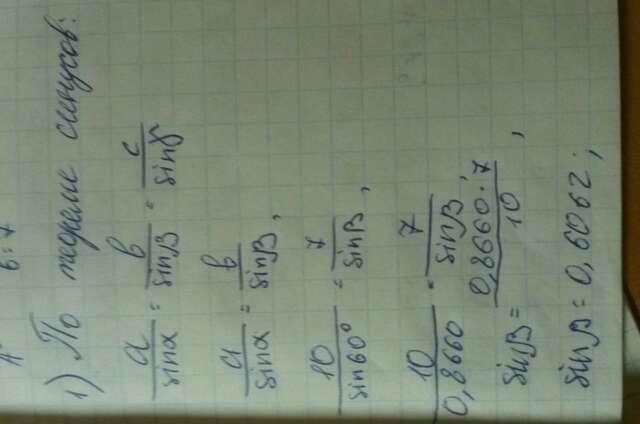 в = 7
1) По теореме синусов:
a/sinα = в/sinβ = c/sinγ
a/sinα = в/sinβ,
10/sin60° = 7/sinβ,
10/0,8660 = 7/sinβ,
sinβ = 0,8660·7/10,
sinβ = 0,6062;